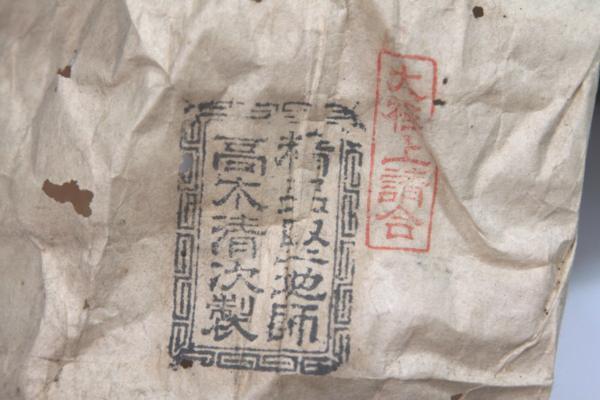 大極上請合
精品堅地師
高木清次製